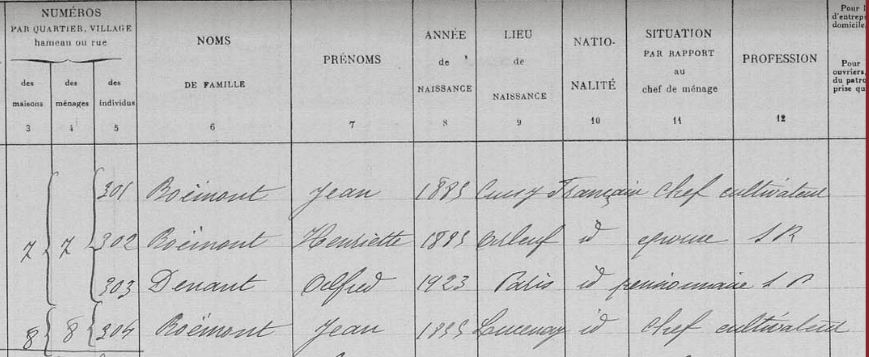 NUMÉROS
PAR QUARTIER, VILLAGE
hameau ou rue
des maisons
des ménages
des individus
NOMS
DE FAMILLE
PRÉNOMS
ANNÉE
de
NAISSANCE
LIEU
de
NAISSANCE
NATIO-
NALITÉ
SITUATION
PAR RAPPORT
au
chef de ménage
PROFESSION
Pour
d'entrep
domicile.
Pour
ouvriers,
du patro
prise qu
3 4 5 6 7 8 9 10 11 12
301 Boëmont Jean Française chef cultivateur
7 7 302 Boëmont Henriette id epouse S R
303 Denant Alfred 1923 Paris id pensionnaire S R
8 8 304 Boëmont Jean Lucenay id chef cultivateur